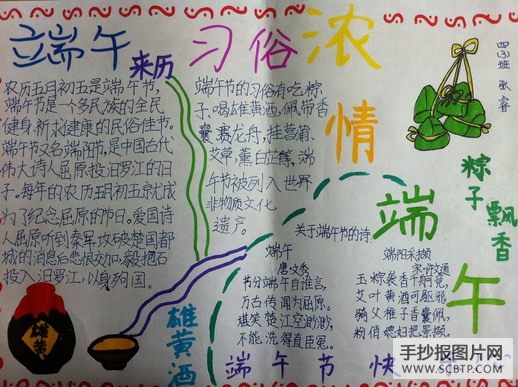 端午来历
习俗浓
情
端
午
四(3)班
张睿
粽子飘香
农历五月初五是端午节,
端午节是一个多民族的全民
健身、祈求健康的民俗佳节。
端午节又名端阳节,是中国古代
伟大诗人屈原投汨罗江的日
子。每年的农历五月初五就成
为了纪念屈原的节日。爱国诗
人屈原听到秦军攻破楚国都
城的消息后悲恨交加,毅抱石
投入汨罗江,以身殉国。
端午节的习俗有吃粽
子、喝雄黄酒、佩带香
囊、赛龙舟,挂菖蒲、
艾草,薰白芷等,端
午节被列入世界
非物质文化
遗产。
关于端午节的诗:
端午
唐·文秀
节分端午自谁言,
万古传闻为屈原。
堪笑楚江空渺渺,
不能洗得直臣冤。
端阳采撷
宋·许文通
玉粽袭香千舸竞,
艾叶黄酒可驱邪。
骑父稚子香囊佩,
粉俏媳妇把景撷。
雄黄
雄黄酒
端午节快
手抄报图片网
WWW.SCBTP.COM